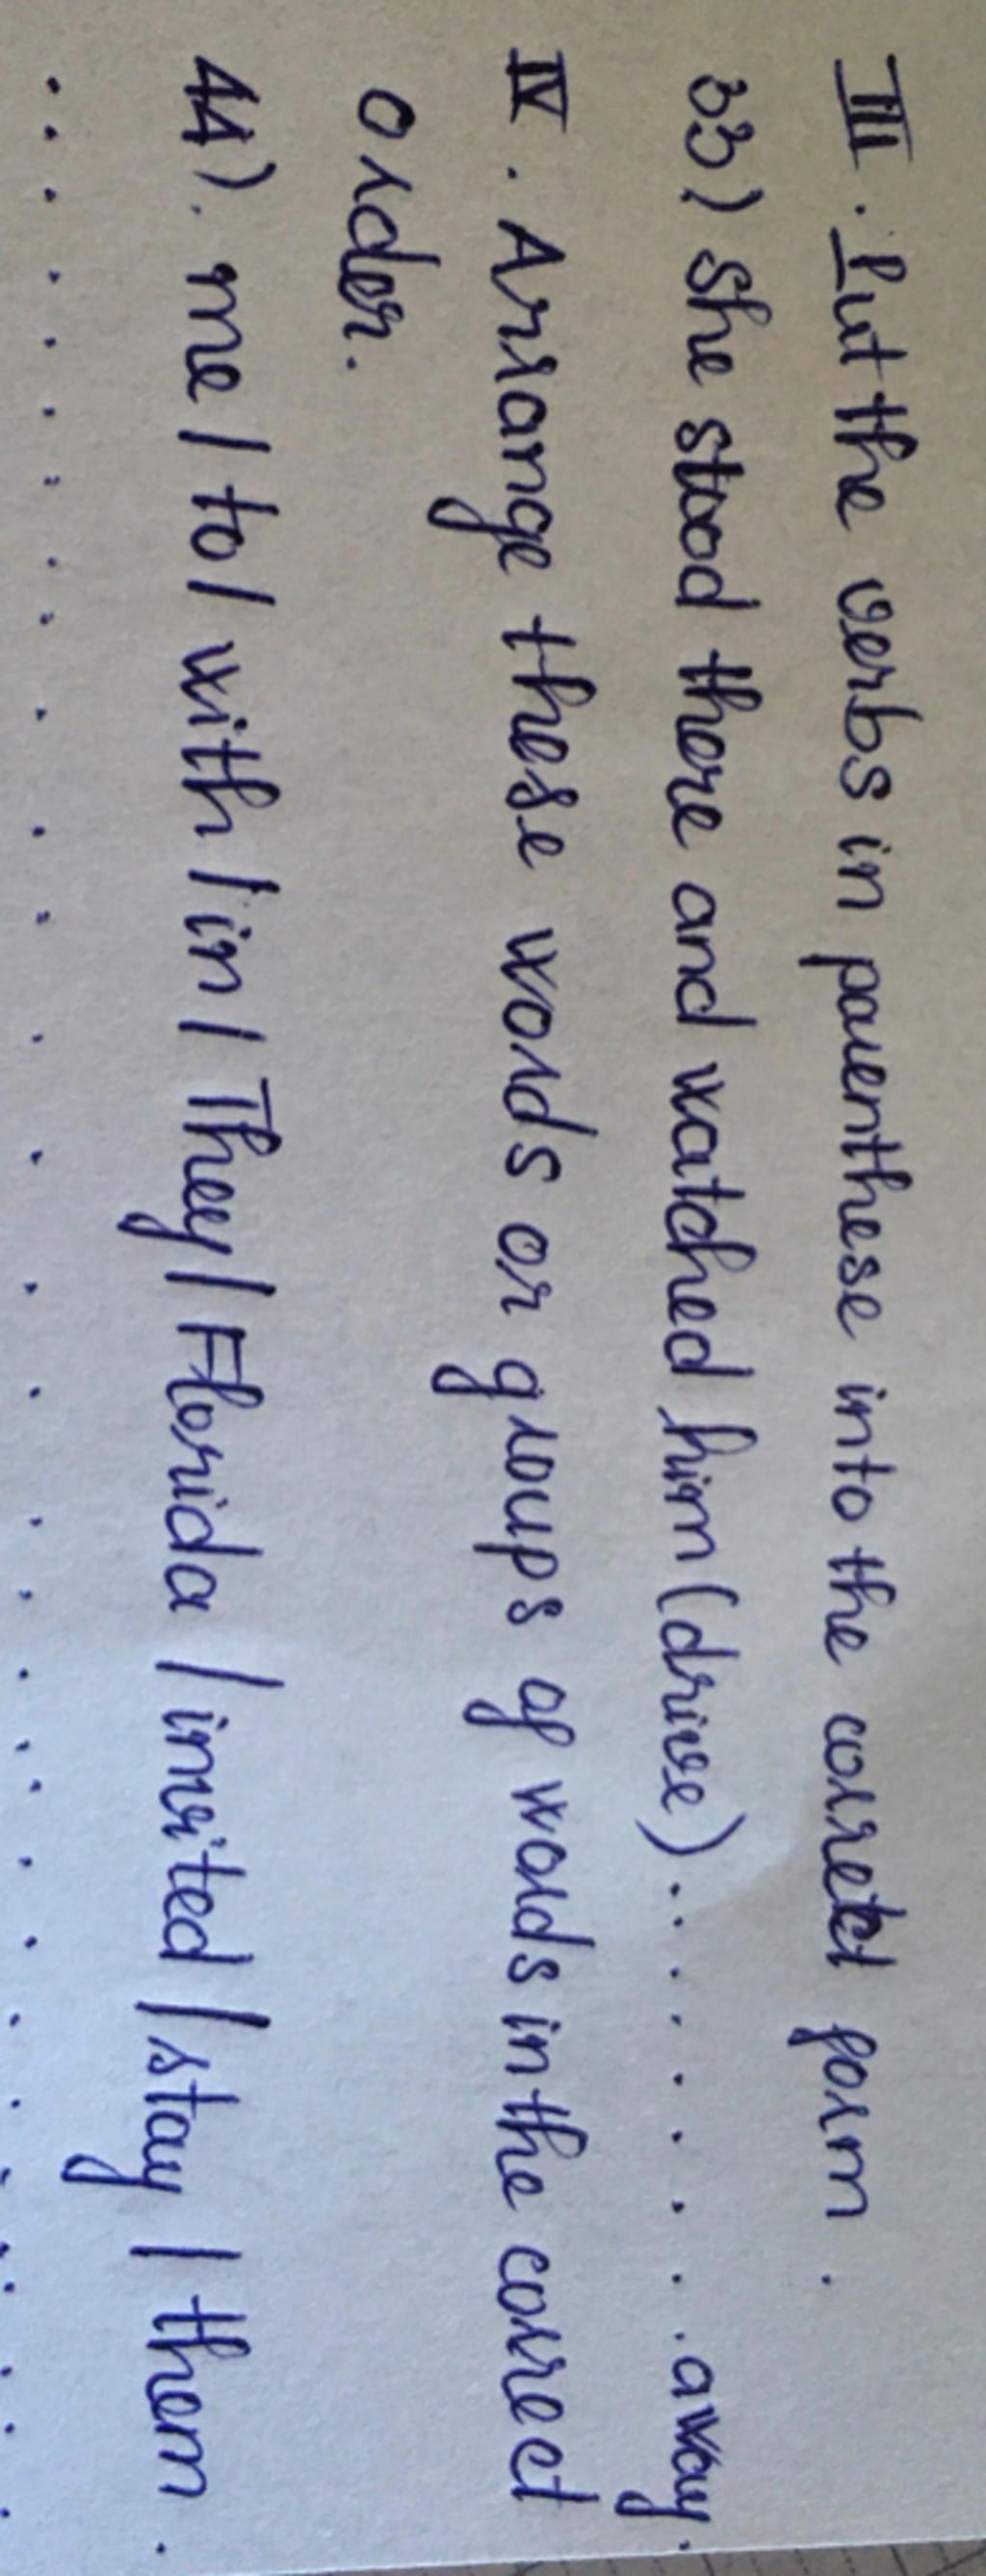 III. Put the verbs in parenthese into the correct form.
33) She stood there and watched him (drive)......... away.
IV. Arrange these words or groups of words in the correct
order.
44). me / to / with / in / They / Florida / invited / stay / them.
..............................